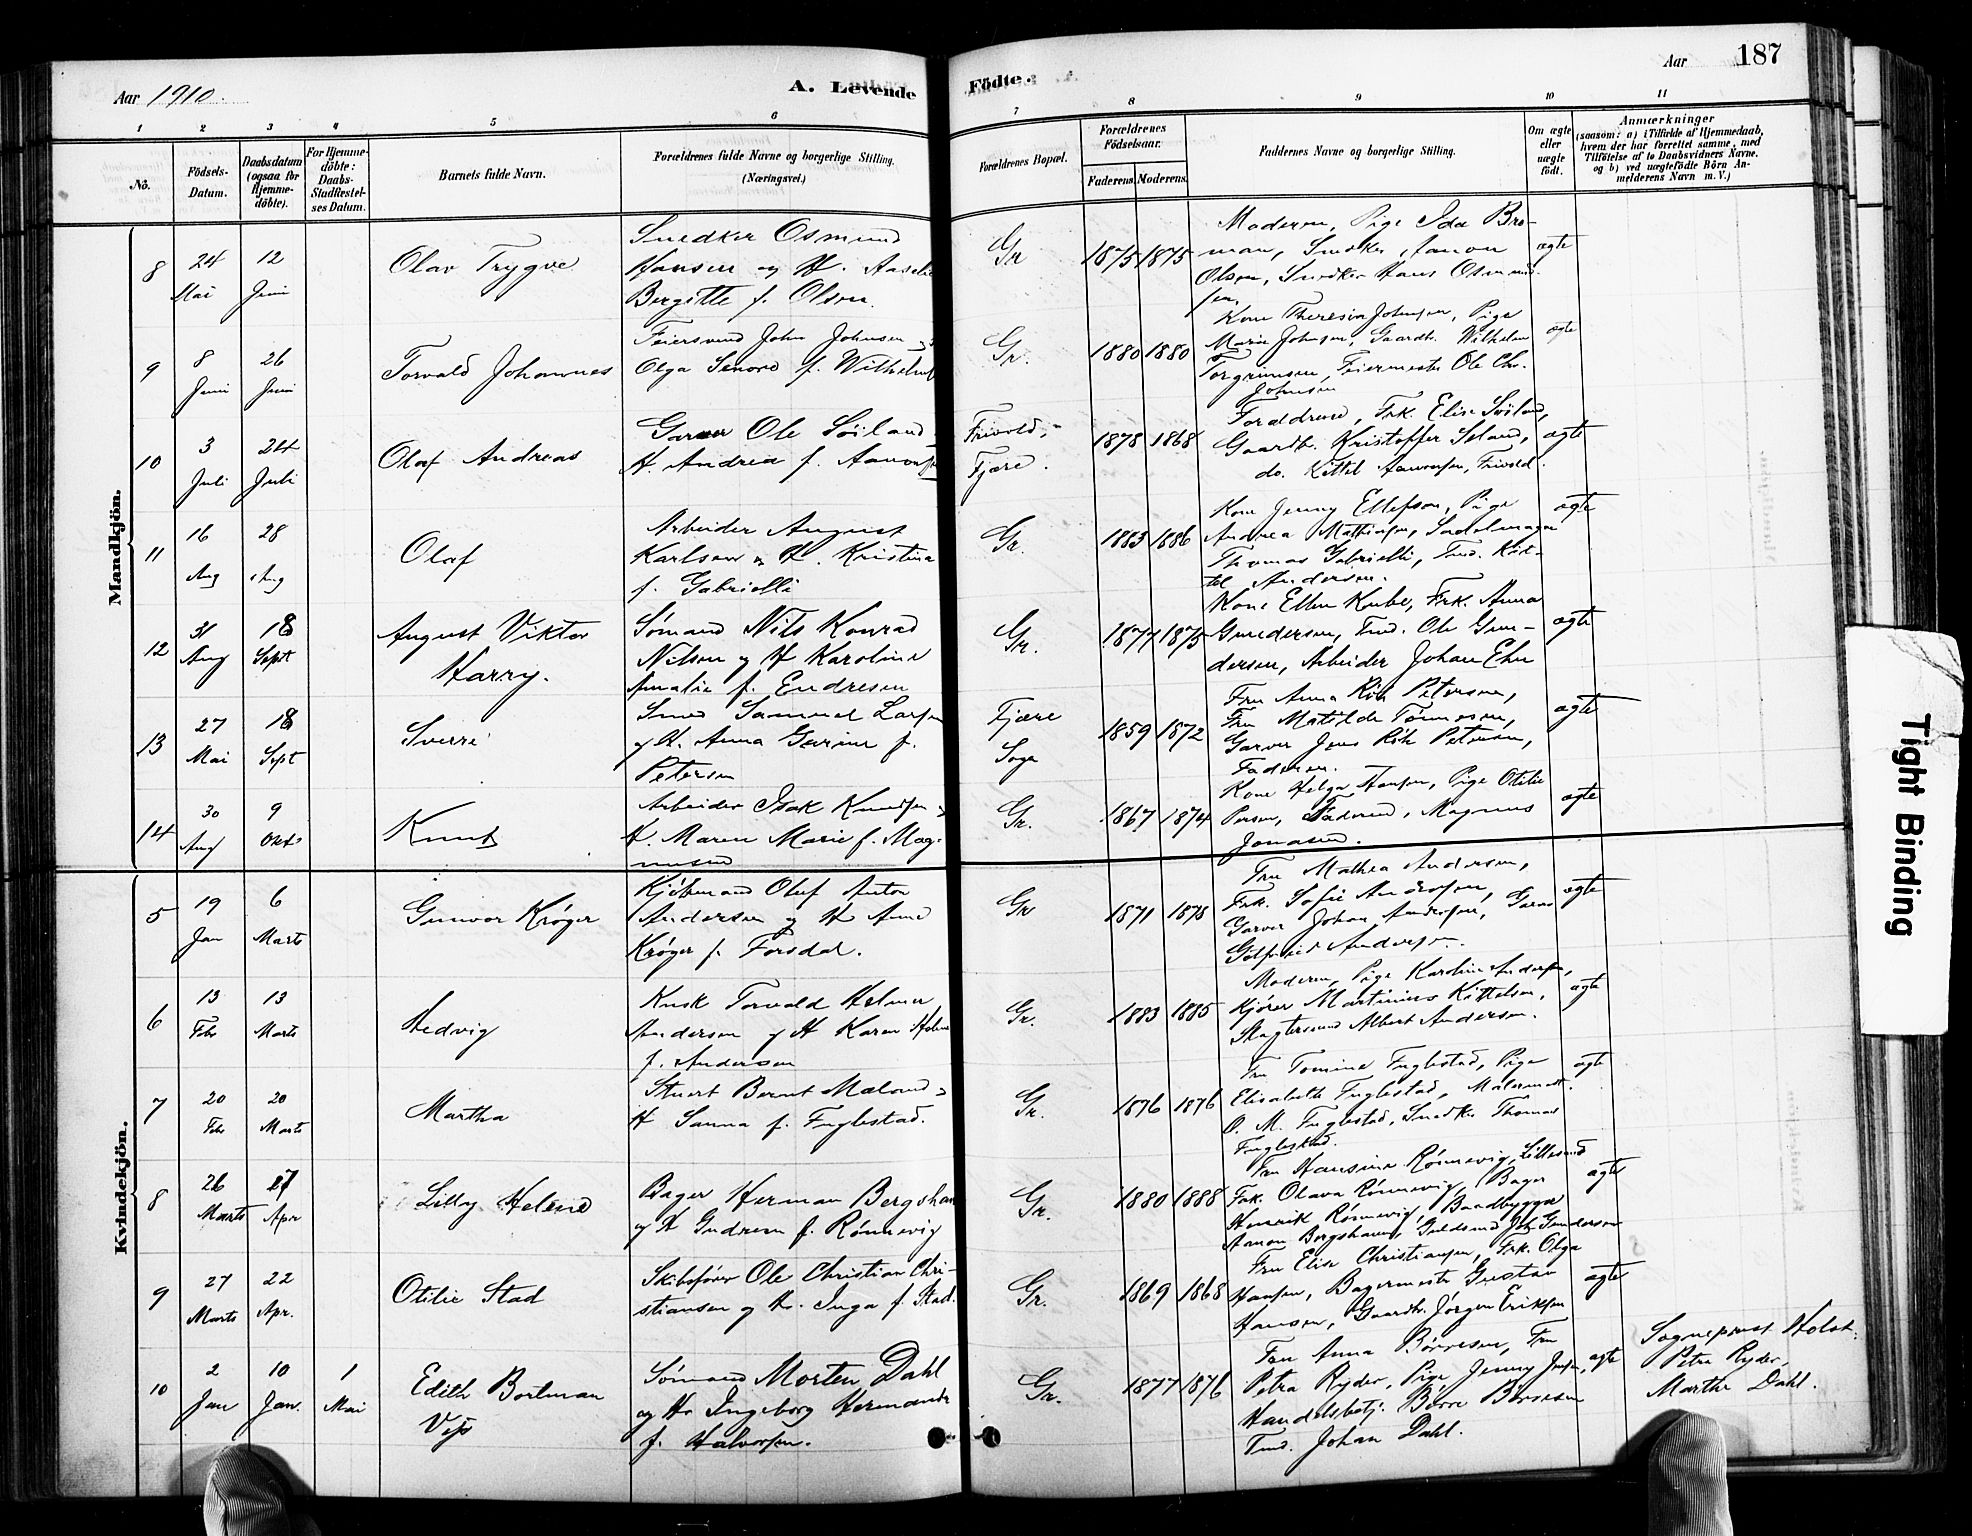 Aar 1910.
A. Levende
Födte.
Aar
187
1
2
3
4
5
6
7
8
9
10
11
No.
Födsels-
Datum.
Daabsdatum
(ogsaa for
Hjemme-
döbte).
For Hjemme-
döbte:
Daabs-
Stadfæstel-
ses Datum.
Barnets fulde Navn.
Forældrenes fulde Navne og borgerlige Stilling.
(Næringsvei.)
Forældrenes Bopæl.
Forældrenes
Födselsaar.
Faderens.
Moderens.
Faddernes Navne og borgerlige Stilling.
Om ægte
eller
uægte
födt.
Anmærkninger
(saasom: a) i Tilfælde af Hjemmedaab,
hvem der har forrettet samme, med
Tilföielse af to Daabsvidners Navne.
og b) ved uægtefödte Börn An-
melderens Navn m. V.)
Mandkjön.
8
24
Mai
12
Juni
Olav Trygve
Snedker Osmund
Hansen og H. Aaselie
Bergitte f. Olsen.
Gr
1875
1875
Moderen, Pige Ida Bro-
man, Snedker Aanon
Olsen, Snedker Hans Osmund-
sen.
ægte
9
8
Juni
26
Juni
Torvald Johannes
Feiersvend John Johnsen
Olga Lenore f. Wilhelms
Gr.
1880
1880
Kone Theresia Johnsen, Pige
Marie Johnsen, Gaardb. Wilhelm
Torgrimsen, Feiermester Ole Chr.
Johnsen
ægte
10
3
Juli
24
Juli
Olaf Andreas
Garver Ole Söiland
H. Andrea f. Aanonsen
Frivold,
Fjære.
1878
1868
Foræddrene, Frk. Elise Söiland,
Gaardb. Kristoffer Söland,
do. Kittel Aanonsen, Frivold.
ægte
11
16
Aug
28
Aug
Olaf
Arbeider August
Karlsen og H. Kristina
f. Gabrielli
Gr.
1883
1886
Kone Jenny Ellefsen, Pige
Andrea Mathisen, Sadelmager
Thomas Gabrielli, Tmd. Kit-
tel Andersen.
ægte
12
31
Aug
18
Sept
August Viktor
Harry.
Sømand Nils Konrad
Nilsen og H Karoline
Amalie f. Endresen
Gr.
1877
1875
Kone Ellen Kube, Frk. Anna
Gundersen, Tmd. Ole Gun-
dersen, Arbeider Johan Ehn
ægte
13
27
Mai
18
Sept
Sverre
Smed Samuel Larsen
og H. Anna Gurine f.
Petersen
Fjære
Sogn
1859
1872
Fru Anna Röh Petersen,
Fru Matilde Tönnesen,
Garver Jens Röh Petersen,
Faderen.
ægte
14
30
Aug
9
Okt
Knut
Arbeider Isak Knudsen
H. Maren Marie f. Mag-
nusen
Gr.
1867
1874
Kone Helga Hansen, Pige Otilie
Persen, Faderen, Magnus
Jonasen.
ægte
Kvindekjön.
5
19
Jan
6
Marts
Gunvor Krøger
Kjöbmand Oluf Anton
Andersen og H Anne
Krøger f. Forsdal.
Gr
1871
1878
Fru Mathea Andersen,
Frk. Sofie Andersen,
Garver Johan Andersen, Garver
Gotfried Andersen.
ægte
6
13
Febr
13
Marts
Hedvig
Kusk Torvald Helmer
Andersen og H Karen
f. Andersen
Gr.
1883
1885
Moderen, Pige Karoline Andersen,
Kjörer Martinius Kittelsen,
Slagtersvend Albert Andersen.
ægte
7
20
Febr
20
Marts
Martha
Stuert Bernt Møland
H Sanna f. Fuglestad.
Gr.
1876
1876
Fru Tomine Fuglestad, Pige
Elisabeth Fuglestad, Malermest.
O. M. Fuglestad, Snedker Thomas
Fuglestad.
ægte
8
26
Marts
27
Apr
Lilly Helene
Bager Herman Bergshaven
og H Gudrun f. Rønnevig
Gr.
1880
1888
Fru Hansine Rønnevig, Lillesand
Frk. Olava Rønnevig, Bager
Henrik Rønnevig, Baadbygger
Aanon Bergshaven, Guldsmed Joh. Gundersen
ægte
9
27
Marts
22
Apr.
Otilie Stad
Skibsfører Ole Christian Chri-
stiansen og H. Inga f. Stad.
Gr.
1869
1868
Fru Elise Christiansen, Frk. Olga
Hansen, Bagermester Gustav
Hansen, Gaardb. Jörgen Eriksen
ægte
10
2
Jan
10
Jan.
1
Mai
Edith Bortman
Sömand Morten Dahl
og H. Ingeborg Hermande
f. Halvorsen.
Gr.
1877
1876
Fru Anna Börresen, Fru
Petra Ryder, Pige Jenny Jensen,
Handelsbetj. Börre Börresen
Tmd. Johan Dahl.
ægte
Sogneprest Holst.
Petra Ryder,
Marthe Dahl.
Tight Binding